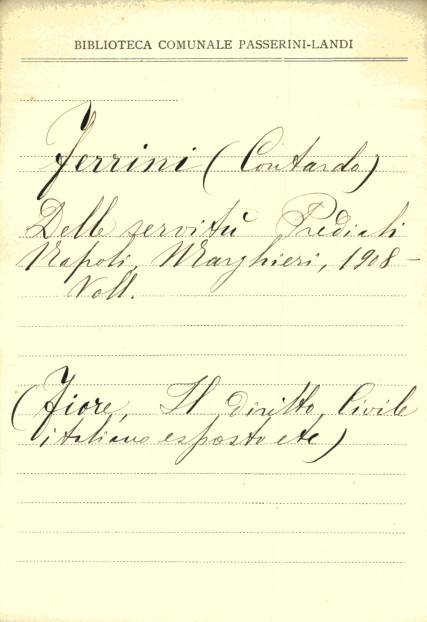 BIBLIOTECA COMUNALE PASSERINI-LANDI
Ferrini (Contardo)
Delle servitù Prediali
Napoli, Marghieri, 1908 -
Voll.
(Fiore, Il diritto Civile
italiano esposto etc)